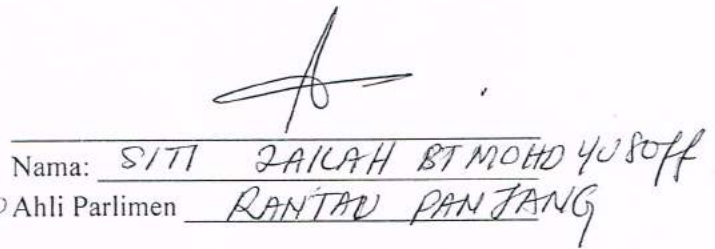 Nama: SITI ZAILAH BT MOHD YUSOFF
Ahli Parlimen RANTAU PANJANG